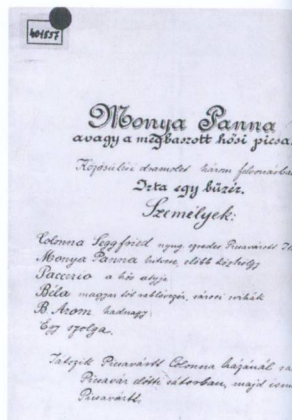 401857
Monya Panna
avagy a megbaszott hősi picsa
Közösülési dramolet három felvonásban
Irta egy bűzir.
Személyek:
Colonna Seggfried nyug. ezredes Picsavárott
Monya Panna hitvese, előbb közhölgy
Paccerio a hős atyja
Béla magyar tót
B Arom hadnagy
Egy szolga.
Játszik Picsavárott Colonna házánál
Picsavár előtti sátorban, majd
Picsavárott.